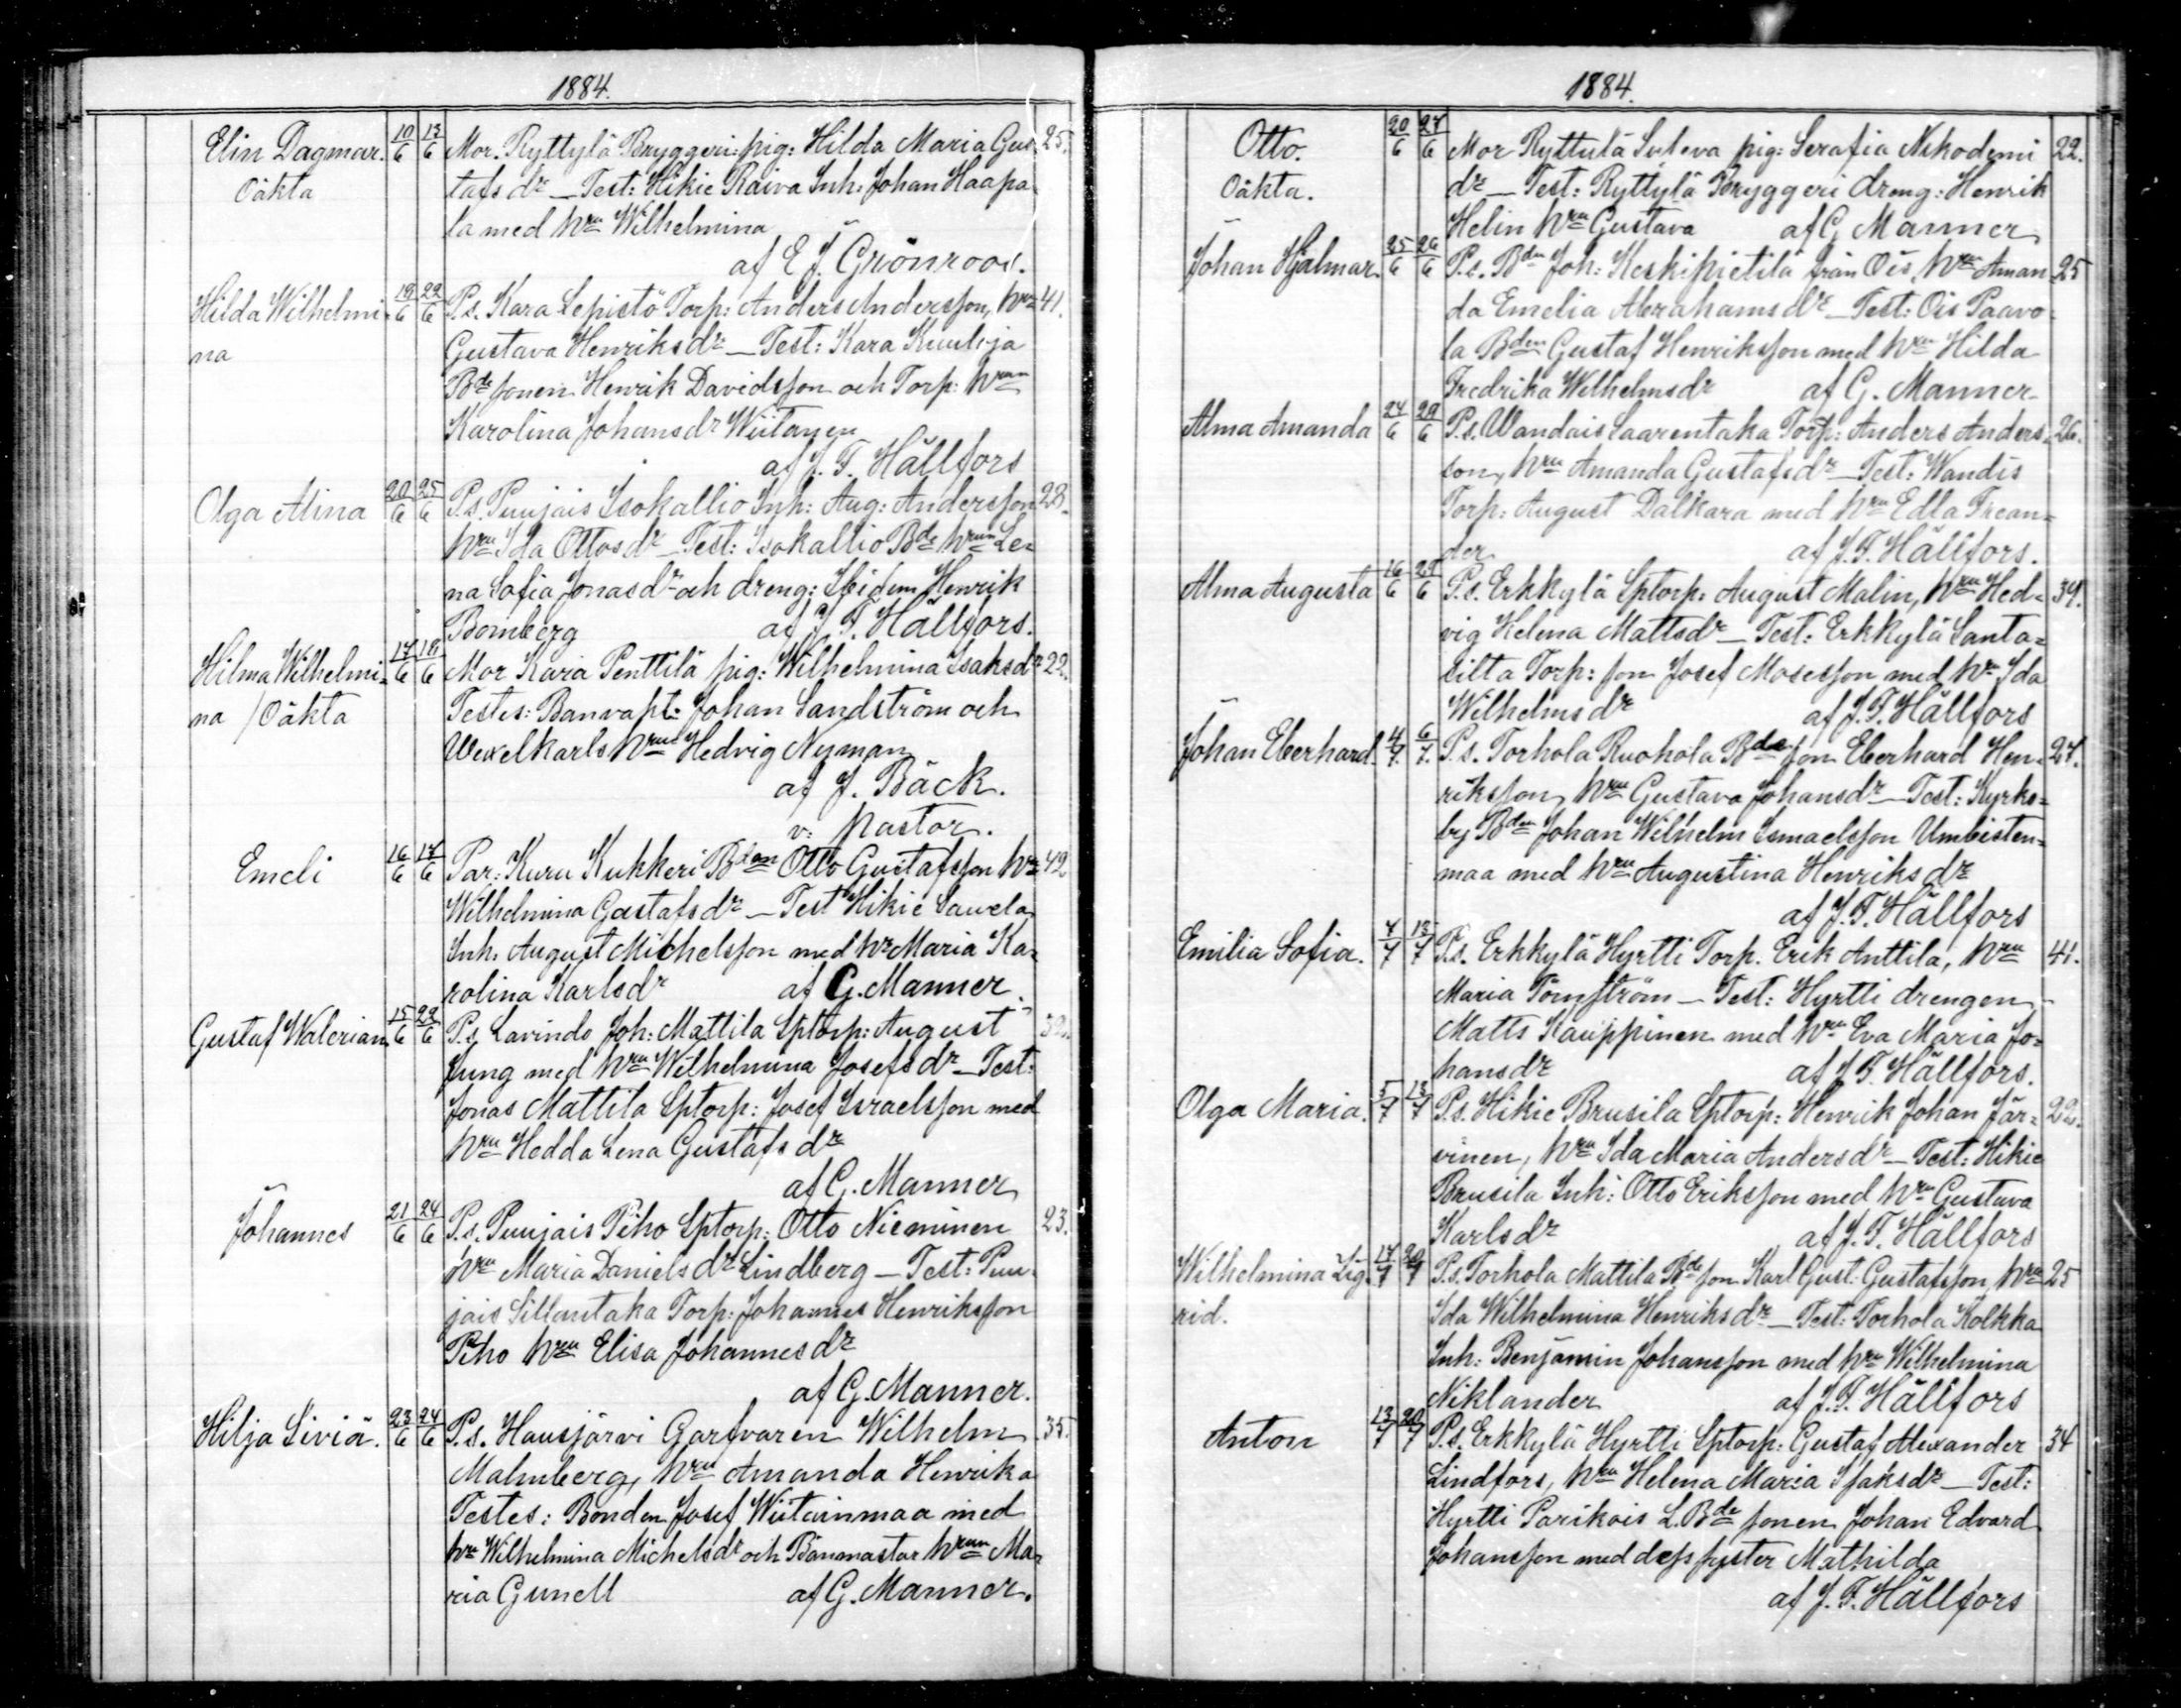 1884.
Elin Dagmar. 10/6 13/6 Mor. Ryttylä Bryggeri: pig: Hilda Maria Gus- 25.
Oäkta tafs dr — Test: Hikie Raiva Inh: Johan Haapa-
la med hru Wilhelmina
af E J. Grönroos.
Hilda Wilhelmi- 19/6 22/6 P.s. Kara Lepistö Torp: Anders Andersson, hru 41.
na Gustava Henriksdr — Test: Kara Kuuloja
Bde sonen Henrik Davidsson och Torp: hrun
Karolina Johansdr Wiitanen
af J. F. Hällfors
Olga Alina 20/6 25/6 P.s. Puujais Isokallio Inh: Aug: Andersson 28.
hru Ida Ottosdr — Test: Isokallio Bde hrun Le-
na Sofia Jonasdr och dreng: Ibidem Henrik
Bomberg af J. F. Hällfors.
Hilma Wilhelmi- 17/6 18/6 Mor Kara Penttilä pig: Wilhelmina Isaksdr 22.
na / Oäkta Testes: Banvakt: Johan Sandström och
Wexelkarls hrun Hedvig Nyman
af J. Bäck.
v: pastor.
Emeli 16/6 17/6 Par: Kuru Kukkeri Bden Otto Gustafsson hru 42
Wilhelmina Gustafsdr — Test Hikie Sauela
Inh. August Michelsson med hr Maria Ka-
rolina Karlsdr af G. Manner.
Gustaf Walerian 15/6 22/6 P.s. Lavindo Joh: Mattila Sptorp: August
Jung med hru Wilhelmina Josefsdr — Test:
Jonas Mattila Sptorp: Josef Israelsson med
hru Hedda Lena Gustafsdr
af G. Manner
Johannes 21/6 24/6 P.s. Puujais Piho Sptorp: Otto Nieminen 23.
hru Maria Danielsdr Lindberg — Test: Puu-
jais Sillantaka Torp: Johannes Henriksson
Piho hru Elisa Johannesdr
af G. Manner.
Hilja Siviä. 23/6 24/6 P.s. Hausjärvi Garfvaren Wilhelm 35.
Malmberg, hru Amanda Henrika
Testes: Bonden Josef Wiitainmaa med
hru Wilhelmina Michelsdr och Banmastar hrun Ma-
ria Gunell af G. Manner.
1884.
Otto. 20/6 27/6 Mor Ryttylä Suteva pig: Serafia Nikodemi 22.
Oäkta. dr — Test: Ryttylä Bryggeri dreng: Henrik
Helin hru Gustava af G Manner
Johan Hjalmar. 25/6 26/6 P.s. Bden Joh: Keskipietilä från Ois, hru Aman- 25
da Emelia Abrahamsdr — Test: Ois Paavo-
la Bden Gustaf Henriksson med hru Hilda
Fredrika Wilhelmsdr af G. Manner
Alma Amanda 24/6 29/6 P.s. Wandais Saarentaka Torp: Anders Anders- 26.
son, hru Amanda Gustafsdr — Test: Wandis
Torp: August Dalkara med hru Edla Trean-
der af J. F. Hällfors.
Alma Augusta 16/6 29/6 P.s. Erkkylä Sptorp: August Malin, hru Hed- 39.
vig Helena Mattsdr — Test: Erkkylä Santa-
silta Torp: son Josef Mosesson med hr Ida
Wilhelmsdr af J. F. Hällfors
Johan Eberhard. 4/7. 6/7. P.s. Torhola Ruohola Bde son Eberhard Hen- 27.
riksson, hru Gustava Johansdr — Test: Kyrko-
by Bden Johan Wilhelm Ismaelsson Umbisten-
maa med hru Augustina Henriksdr
af J. F. Hällfors
Emilia Sofia. 7/7 13/7 P.s. Erkkylä Hyrtti Torp. Erik Anttila, hru 41.
Maria Tornström — Test: Hyrtti drengen
Matts Kauppinen med hru Eva Maria Jo-
hansdr af J. F. Hällfors.
Olga Maria. 5/7 13/7 P.s. Hikie Brusila Sptorp: Henrik Johan Jär- 22.
vinen, hru Ida Maria Andersdr — Test: Hikie
Brusila Inh: Otto Eriksson med hru Gustava
Karlsdr af J. F. Hällfors
Wilhelmina Sig- 17/7 20/7 P.s. Torhola Mattila Bde son Karl Gust: Gustafsson, hru 25
rid. Ida Wilhelmina Henriksdr — Test: Torhola Kolkka
Inh: Benjamin Johansson med hru Wilhelmina
Niklander af J. F. Hällfors
Anton 13/7 20/7 P.s. Erkkylä Hyrtti Sptorp: Gustaf Alexander 34
Lindfors, hru Helena Maria Isaksdr — Test:
Hyrtti Parikois L. Bde sonen Johan Edvard
Johansson med dess syster Mathilda
af J. F. Hällfors